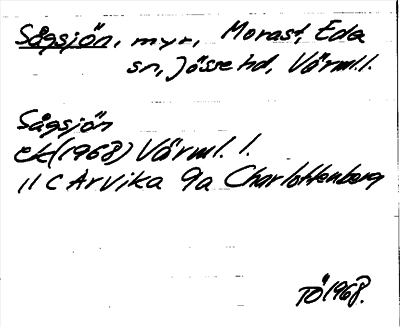 Sågsjön, myr, Morast, Eda
sn, Jösse hd, Värml.l.
Sågsjön
ek (1968) Värml. l.
11 C Arvika 9a Charlottenberg
TÖ 1968.